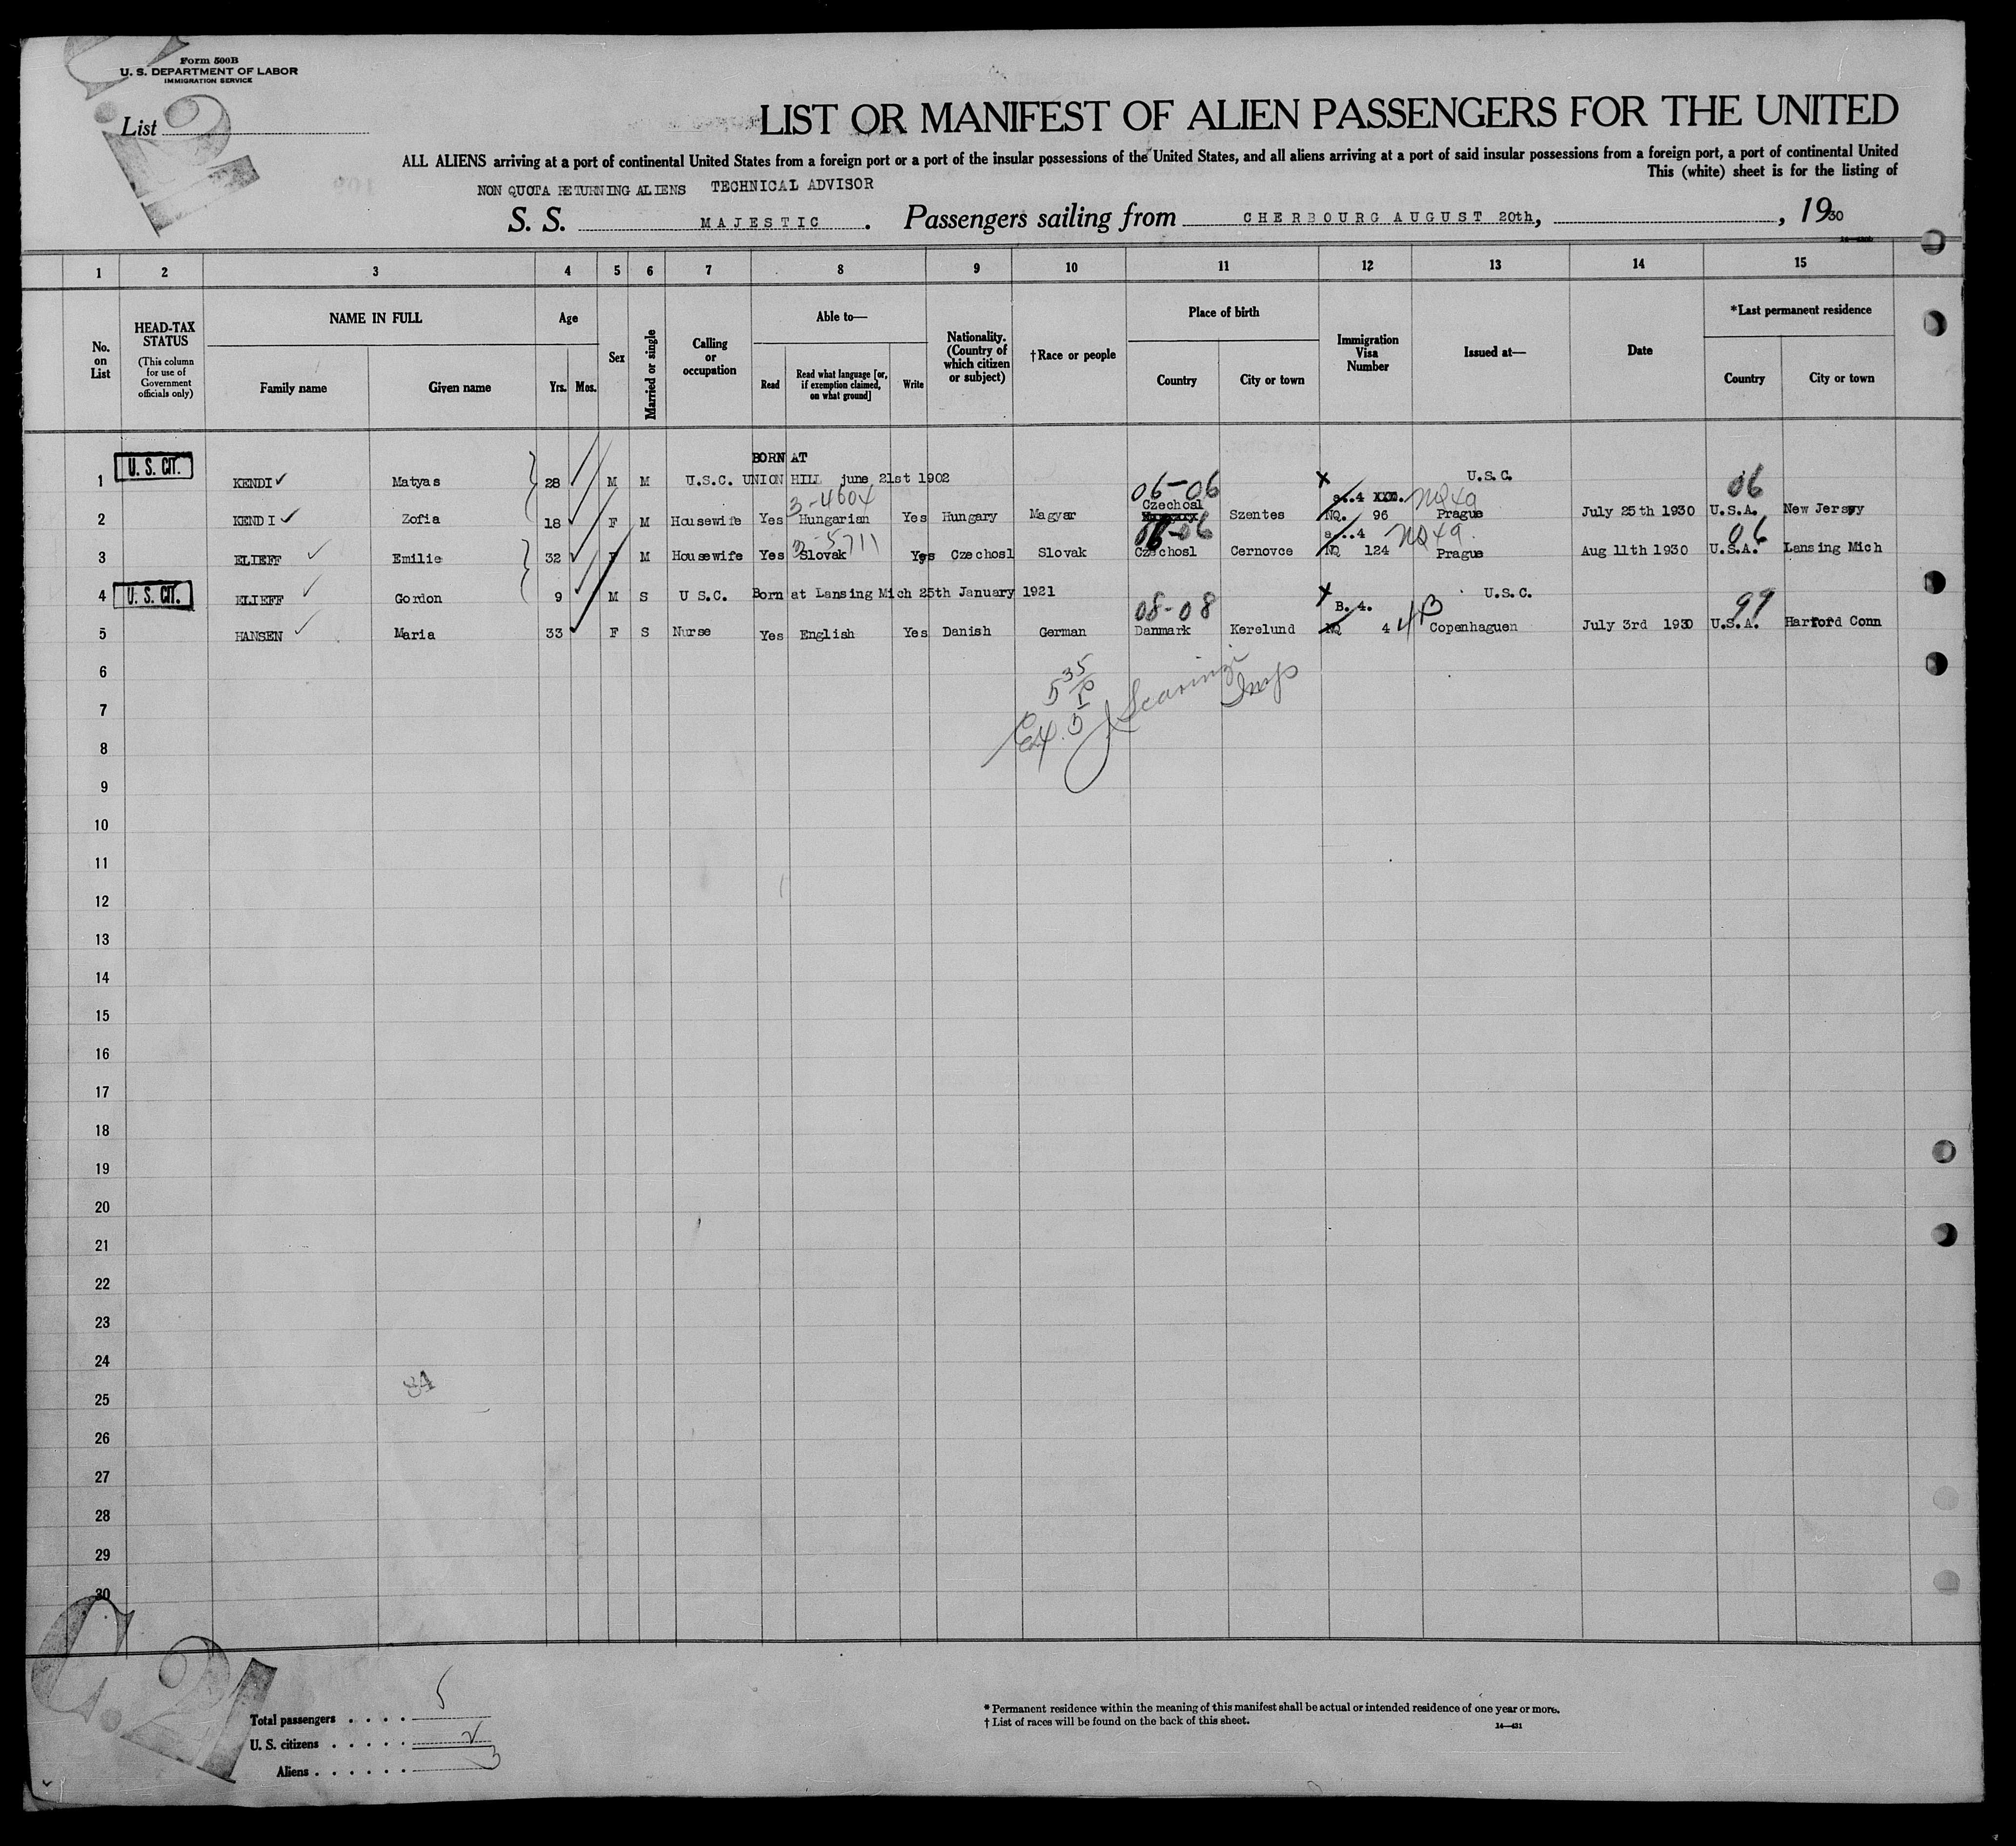 Form 500B
U. S. DEPARTMENT OF LABOR
IMMIGRATION SERVICE
List
LIST OR MANIFEST OF ALIEN PASSENGERS FOR THE UNITED
ALL ALIENS arriving at a port of continental United States from a foreign port or a port of the insular possessions of the United States, and all aliens arriving at a port of said insular possessions from a foreign port, a port of continental United
This (white) sheet is for the listing of
NON QUOTA RETURNING ALIENS TECHNICAL ADVISOR
S. S. MAJESTIC. Passengers sailing from CHERBOURG AUGUST 20th, , 1930
1 2 3 4 5 6 7 8 9 10 11 12 13 14 15
No. on List
HEAD-TAX STATUS
(This column for use of Government officials only)
NAME IN FULL
Family name Given name
Age
Yrs. Mos.
Sex
Married or single
Calling or occupation
Able to—
Read
Read what language [or, if exemption claimed, on what ground]
Write
Nationality. (Country of which citizen or subject)
†Race or people
Place of birth
Country City or town
Immigration Visa Number
Issued at—
Date
*Last permanent residence
Country City or town
BORN AT
1 U. S. CIT. KENDI Matyas 28 M M U.S.C. UNION HILL june 21st 1902 U.S.C.
06-06 06
3-4604 Czechosl a..4 XXX. NQ4a
2 KENDI Zofia 18 F M Housewife Yes Hungarian Yes Hungary Magyar Szentes NQ. 96 Prague July 25th 1930 U.S.A. New Jersey
3-5711 06-06 a..4 NQ4a. 06
3 ELIEFF Emilie 32 F M Housewife Yes Slovak Yes Czechosl Slovak Czechosl Cernovce NQ 124 Prague Aug 11th 1930 U.S.A. Lansing Mich
4 U. S. CIT. ELIEFF Gordon 9 M S U S.C. Born at Lansing Mich 25th January 1921 U.S.C.
08-08 B. 4. 4B 99
5 HANSEN Maria 33 F S Nurse Yes English Yes Danish German Danmark Kerelund NQ 4 Copenhaguen July 3rd 1930 U.S.A. Harford Conn
6
7
8
9
10
11
12
13
14
15
16
17
18
19
20
21
22
23
24
25
26
27
28
29
30
C.21
Total passengers . . . . 5
U. S. citizens . . . . . 2
Aliens . . . . . . 3
* Permanent residence within the meaning of this manifest shall be actual or intended residence of one year or more.
† List of races will be found on the back of this sheet.
14—431